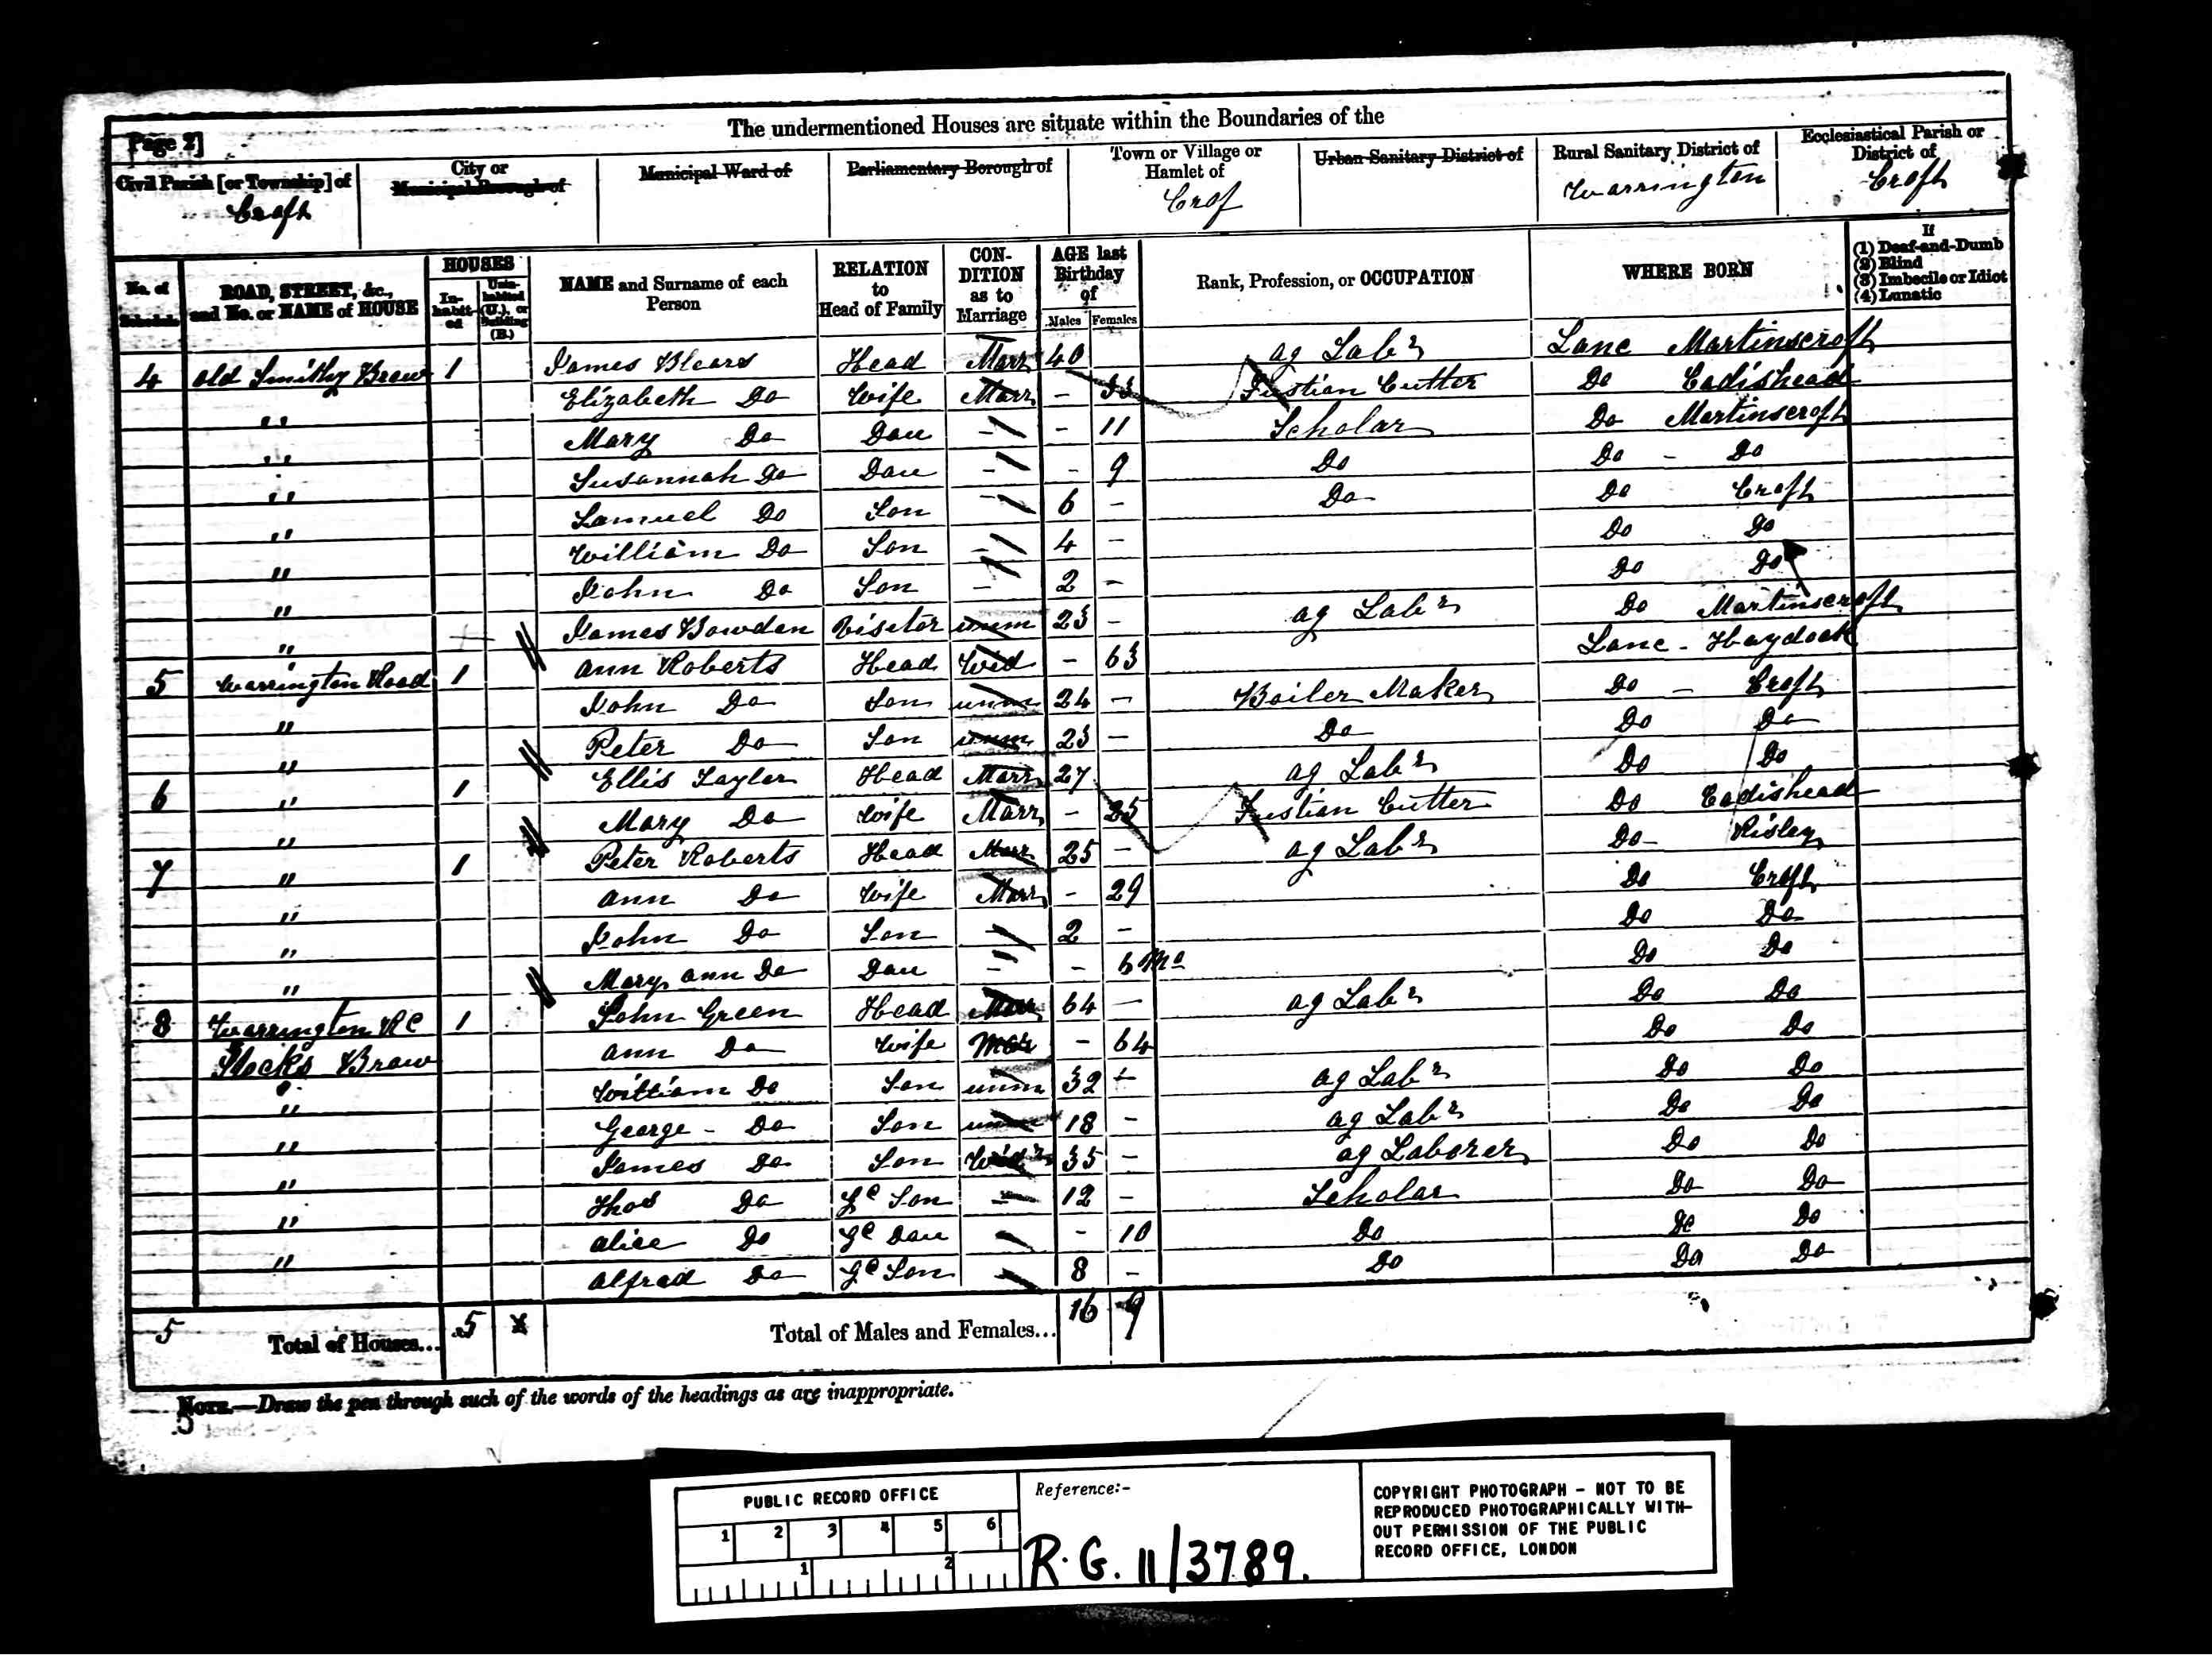 Page 2]
The undermentioned Houses are situate within the Boundaries of the
Civil Parish [or Township] of
Croft
City or
Municipal Borough of
Municipal Ward of
Parliamentary Borough of
Town or Village or
Hamlet of
Crof
Urban Sanitary District of
Rural Sanitary District of
Warrington
Ecclesiastical Parish or
District of
Croft
No. of
Schedule
ROAD, STREET, &c.,
and No. or NAME of HOUSE
HOUSES
In-
habit-
ed
Unin-
habited
(U.), or
Building
(B.)
NAME and Surname of each
Person
RELATION
to
Head of Family
CON-
DITION
as to
Marriage
AGE last
Birthday
of
Males Females
Rank, Profession, or OCCUPATION
WHERE BORN
If
(1) Deaf-and-Dumb
(2) Blind
(3) Imbecile or Idiot
(4) Lunatic
4 Old Smithy Brow 1 James Blears Head Marr 40 ag Labr Lanc Martinscroft
" Elizabeth Do Wife Marr - 33 Fustian Cutter Do Cadishead
" Mary Do Dau - - 11 Scholar Do Martinscroft
" Susannah Do Dau - - 9 Do Do - Do
" Samuel Do Son - 6 - Do Do Croft
" William Do Son - 4 - Do Do
" John Do Son - 2 - Do Do
" James Bowden Visitor unm 23 - ag Labr Do Martinscroft
5 Warrington Road 1 Ann Roberts Head Wid - 63 Lanc - Haydock
" John Do Son unm 24 - Boiler Maker Do - Croft
" Peter Do Son unm 23 - Do Do Do
6 " 1 Ellis Taylor Head Marr 27 ag Labr Do Do
" Mary Do Wife Marr - 25 Fustian Cutter Do Cadishead
7 " 1 Peter Roberts Head Marr 25 - ag Labr Do - Risley
" Ann Do Wife Marr - 29 Do Croft
" John Do Son - 2 - Do Do
" Mary Ann Do Dau - - 6 Mo Do Do
8 Warrington Rd 1 John Green Head Marr 64 - ag Labr Do Do
Brow Ann Do Wife Mar - 64 Do Do
" William Do Son unm 32 - ag Labr Do Do
" George - Do Son unm 18 - ag Labr Do Do
" James Do Son Widr 35 - ag Laborer Do Do
" Thos Do Gd Son - 12 - Scholar Do Do
" Alice Do Gd Dau - - 10 Do Do Do
" Alfred Do Gd Son - 8 - Do Do Do
5 Total of Houses... 5 Total of Males and Females... 16 9
NOTE.—Draw the pen through such of the words of the headings as are inappropriate.
5
PUBLIC RECORD OFFICE
1 2 3 4 5 6
1 2
Reference:-
R.G. 11/3789.
COPYRIGHT PHOTOGRAPH - NOT TO BE
REPRODUCED PHOTOGRAPHICALLY WITH-
OUT PERMISSION OF THE PUBLIC
RECORD OFFICE, LONDON